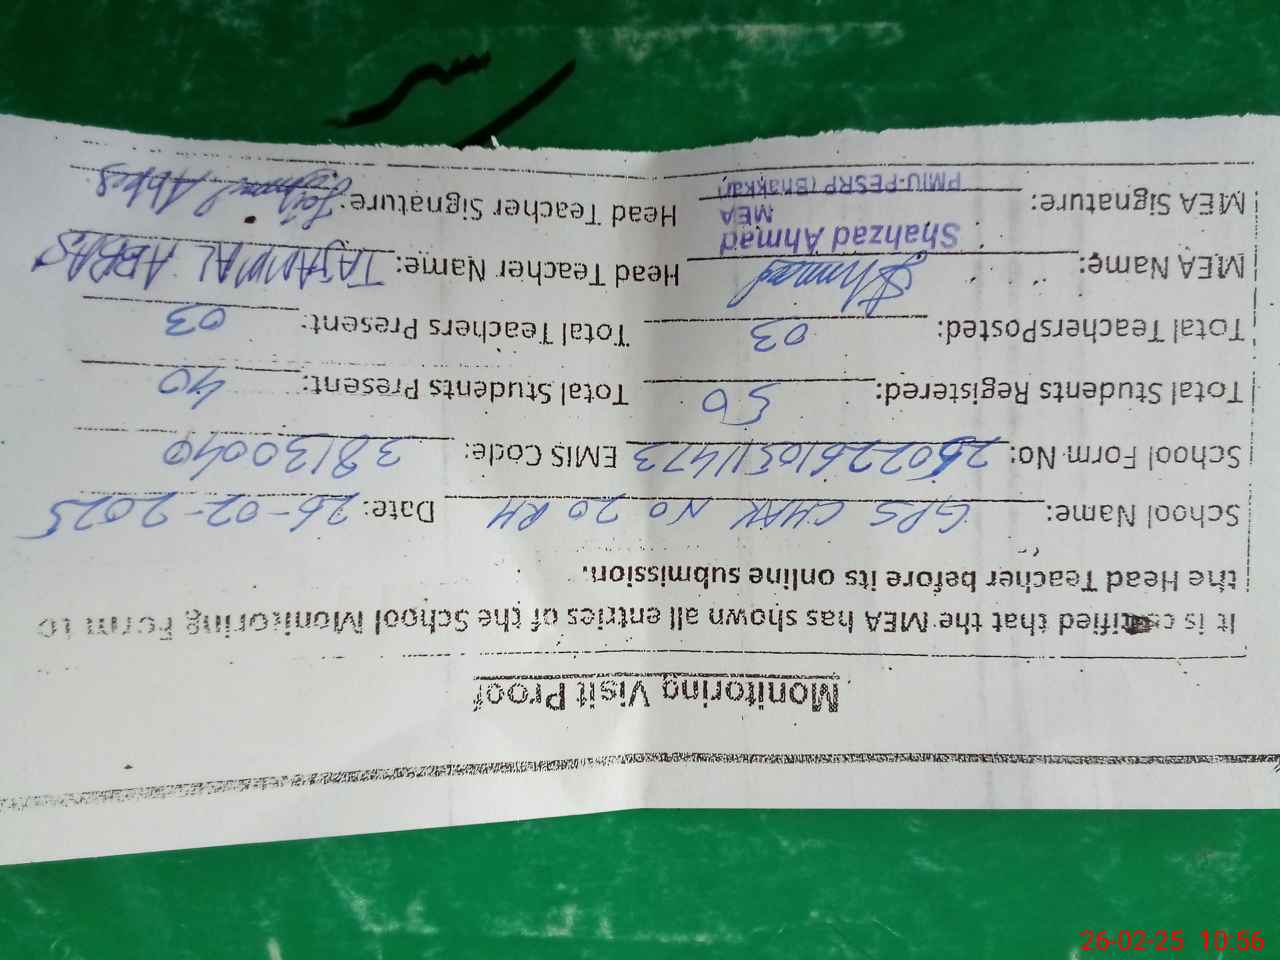 Monitoring Visit Proof
It is certified that the MEA has shown all entries of the School Monitoring Form to
the Head Teacher before its online submission.
School Name: GPS CHAK NO 20 RH Date: 26-02-2025
School Form No: 26022610511473 EMIS Code: 38130040
Total Students Registered: 50 Total Students Present: 40
Total TeachersPosted: 03 Total Teachers Present: 03
MEA Name: Head Teacher Name: TAJAMMAL ABBAS
Shahzad Ahmad
MEA
MEA Signature: PMIU-PESRP (Bhakkar) Head Teacher Signature: Tajammal Abbas
26-02-25 10:56